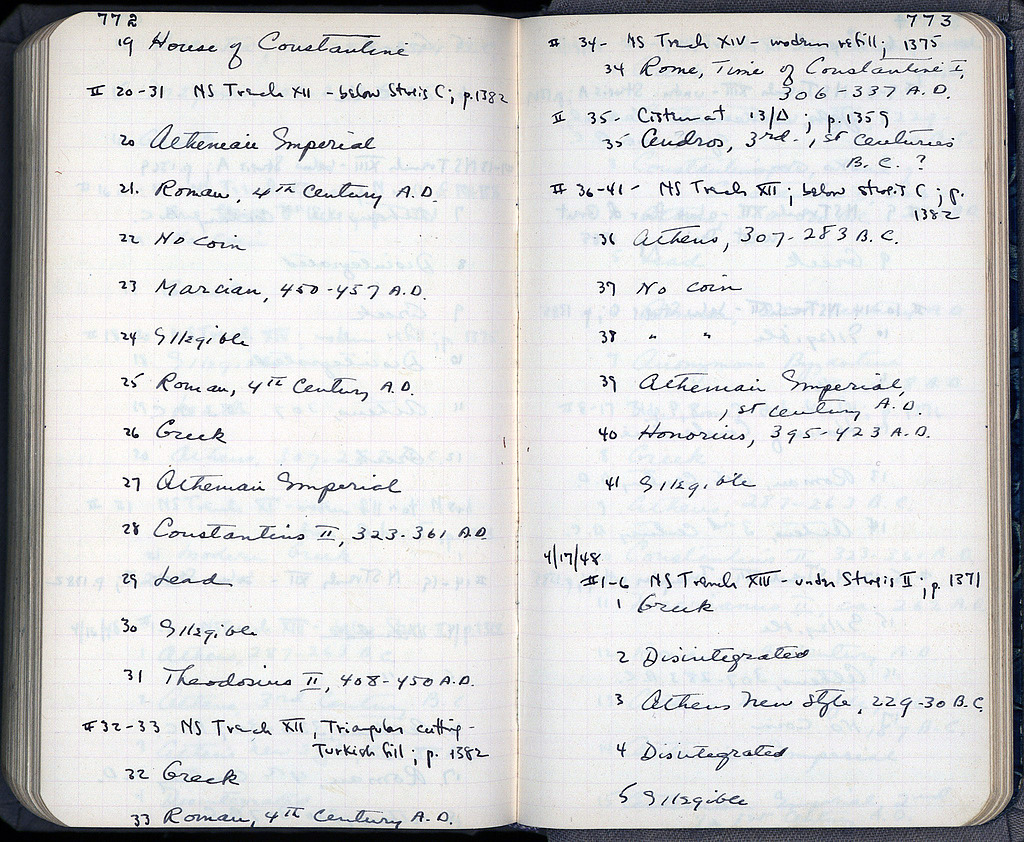 772
19 House of Constantine
# 20-31 NS Trench XII - below Stereis C; p.1382
20 Athenian Imperial
21. Roman, 4th Century A.D.
22 No coin
23 Marcian, 450-457 A.D.
24 Illegible
25 Roman, 4th Century A.D.
26 Greek
27 Athenian Imperial
28 Constantius II, 323-361 A.D.
29 Lead
30 Illegible
31 Theodosius II, 408-450 A.D.
#32-33 NS Trench XII, Triangular cutting -
Turkish fill; p. 1382
32 Greek
33 Roman, 4th Century A.D.
773
# 34- NS Trench XIV - modern refill; 1375
34 Rome, Time of Constantine I,
306-337 A.D.
# 35- Cistern at 13/Δ; p.1359
35 Andros, 3rd-1st centuries
B.C. ?
# 36-41- NS Trench XII; below Stereis C; p.
1382
36 Athens, 307-283 B.C.
37 No coin
38 " "
39 Athenian Imperial,
1st century A.D.
40 Honorius, 395-423 A.D.
41 Illegible
4/17/48
#1-6 NS Trench XIII - under Stereis II; p. 1371
1 Greek
2 Disintegrated
3 Athens New Style, 229-30 B.C.
4 Disintegrated
5 Illegible